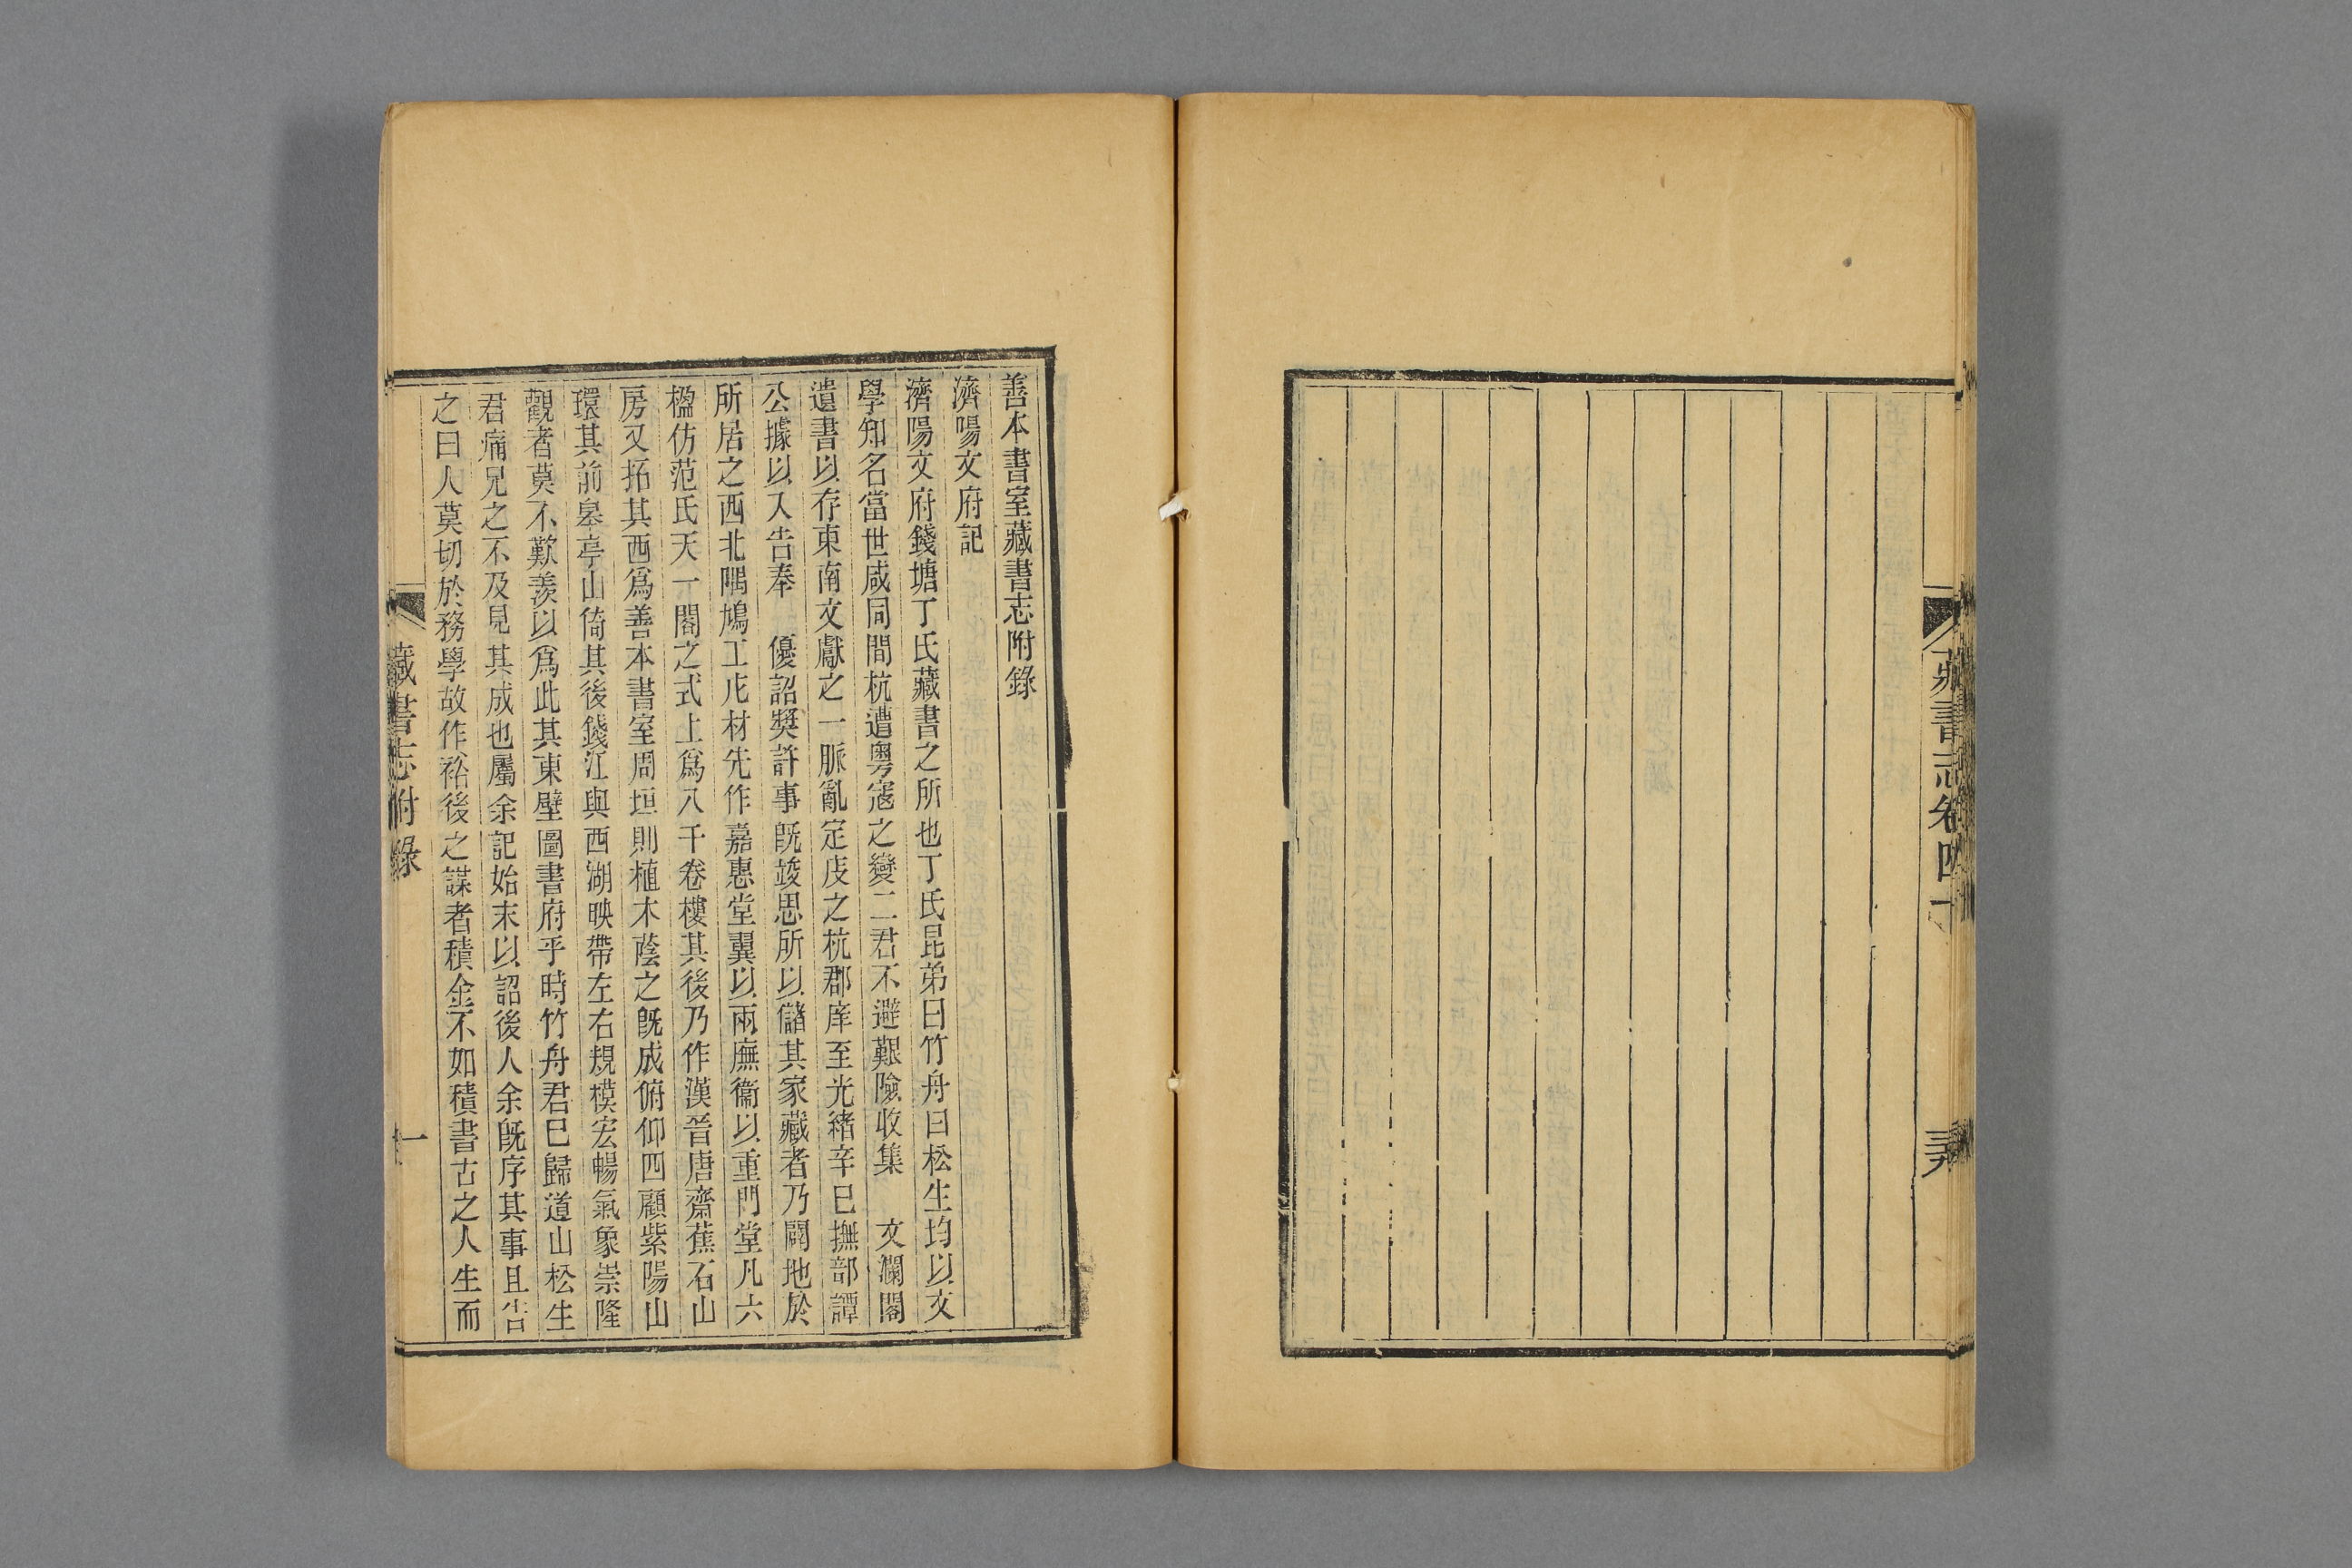 藏書志卷四十
善本書室藏書志附錄
濟陽文府記
濟陽文府錢塘丁氏藏書之所也丁氏昆弟曰竹舟曰松生均以文
學知名當世咸同間杭遭粵寇之變二君不避艱險收集 文瀾閣
遺書以存東南文獻之一脈亂定庋之杭郡庠至光緒辛巳撫部譚
公據以入告奉 優詔獎許事旣竣思所以儲其家藏者乃闢地於
所居之西北隅鳩工庀材先作嘉惠堂翼以兩廡衞以重門堂凡六
楹仿范氏天一閣之式上爲八千卷樓其後乃作漢晉唐齋蕉石山
房又拓其西爲善本書室周垣則植木蔭之旣成俯仰四顧紫陽山
環其前皋亭山倚其後錢江與西湖映帶左右規模宏暢氣象崇隆
觀者莫不歎羨以爲此其東壁圖書府乎時竹舟君巳歸道山松生
君痛兄之不及見其成也屬余記始末以詔後人余旣序其事且告
之曰人莫切於務學故作裕後之謀者積金不如積書古之人生而
藏書志附錄
一